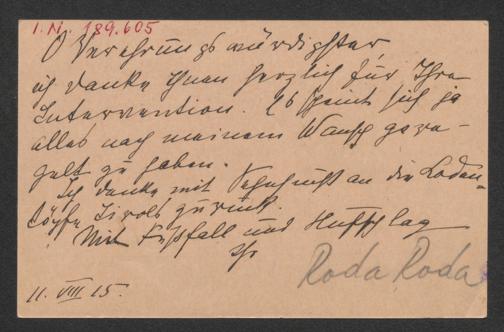 I.N. 189.605
O Verehrungswürdigster,
ich danke Ihnen herzlich für Ihre
Intervention. Es scheint sich ja
alles nach meinem Wunsch gere-
gelt zu haben.
Ich denke mit Sehnsucht an die Loden-
zöpfe Tirols zurück.
Mit Fußfall und Hufschlag
Ihr
Roda Roda
11. VIII 15.